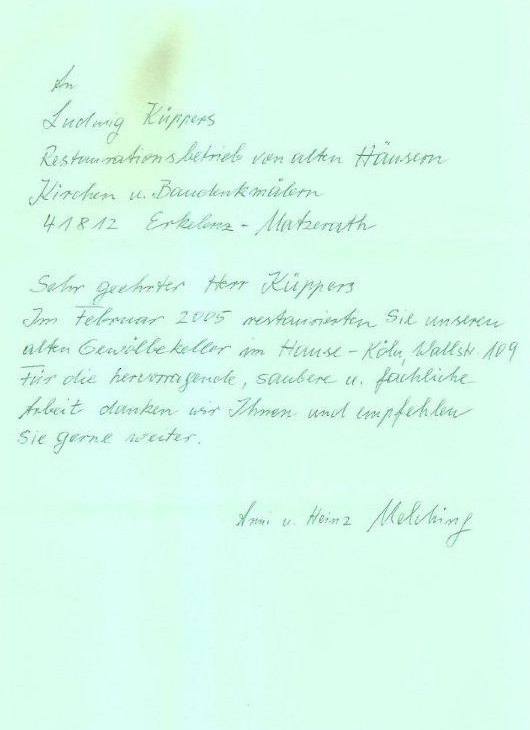 An
Ludwig Küppers
Restaurationsbetrieb von alten Häusern
Kirchen u. Baudenkmälern
41812 Erkelenz - Matzerath
Sehr geehrter Herr Küppers
Im Februar 2005 restaurierten Sie unseren
alten Gewölbekeller im Hause - Köln, Wallstr. 109
Für die hervorragende, saubere u. fachliche
Arbeit danken wir Ihnen und empfehlen
Sie gerne weiter.
Anni u. Heinz Melching